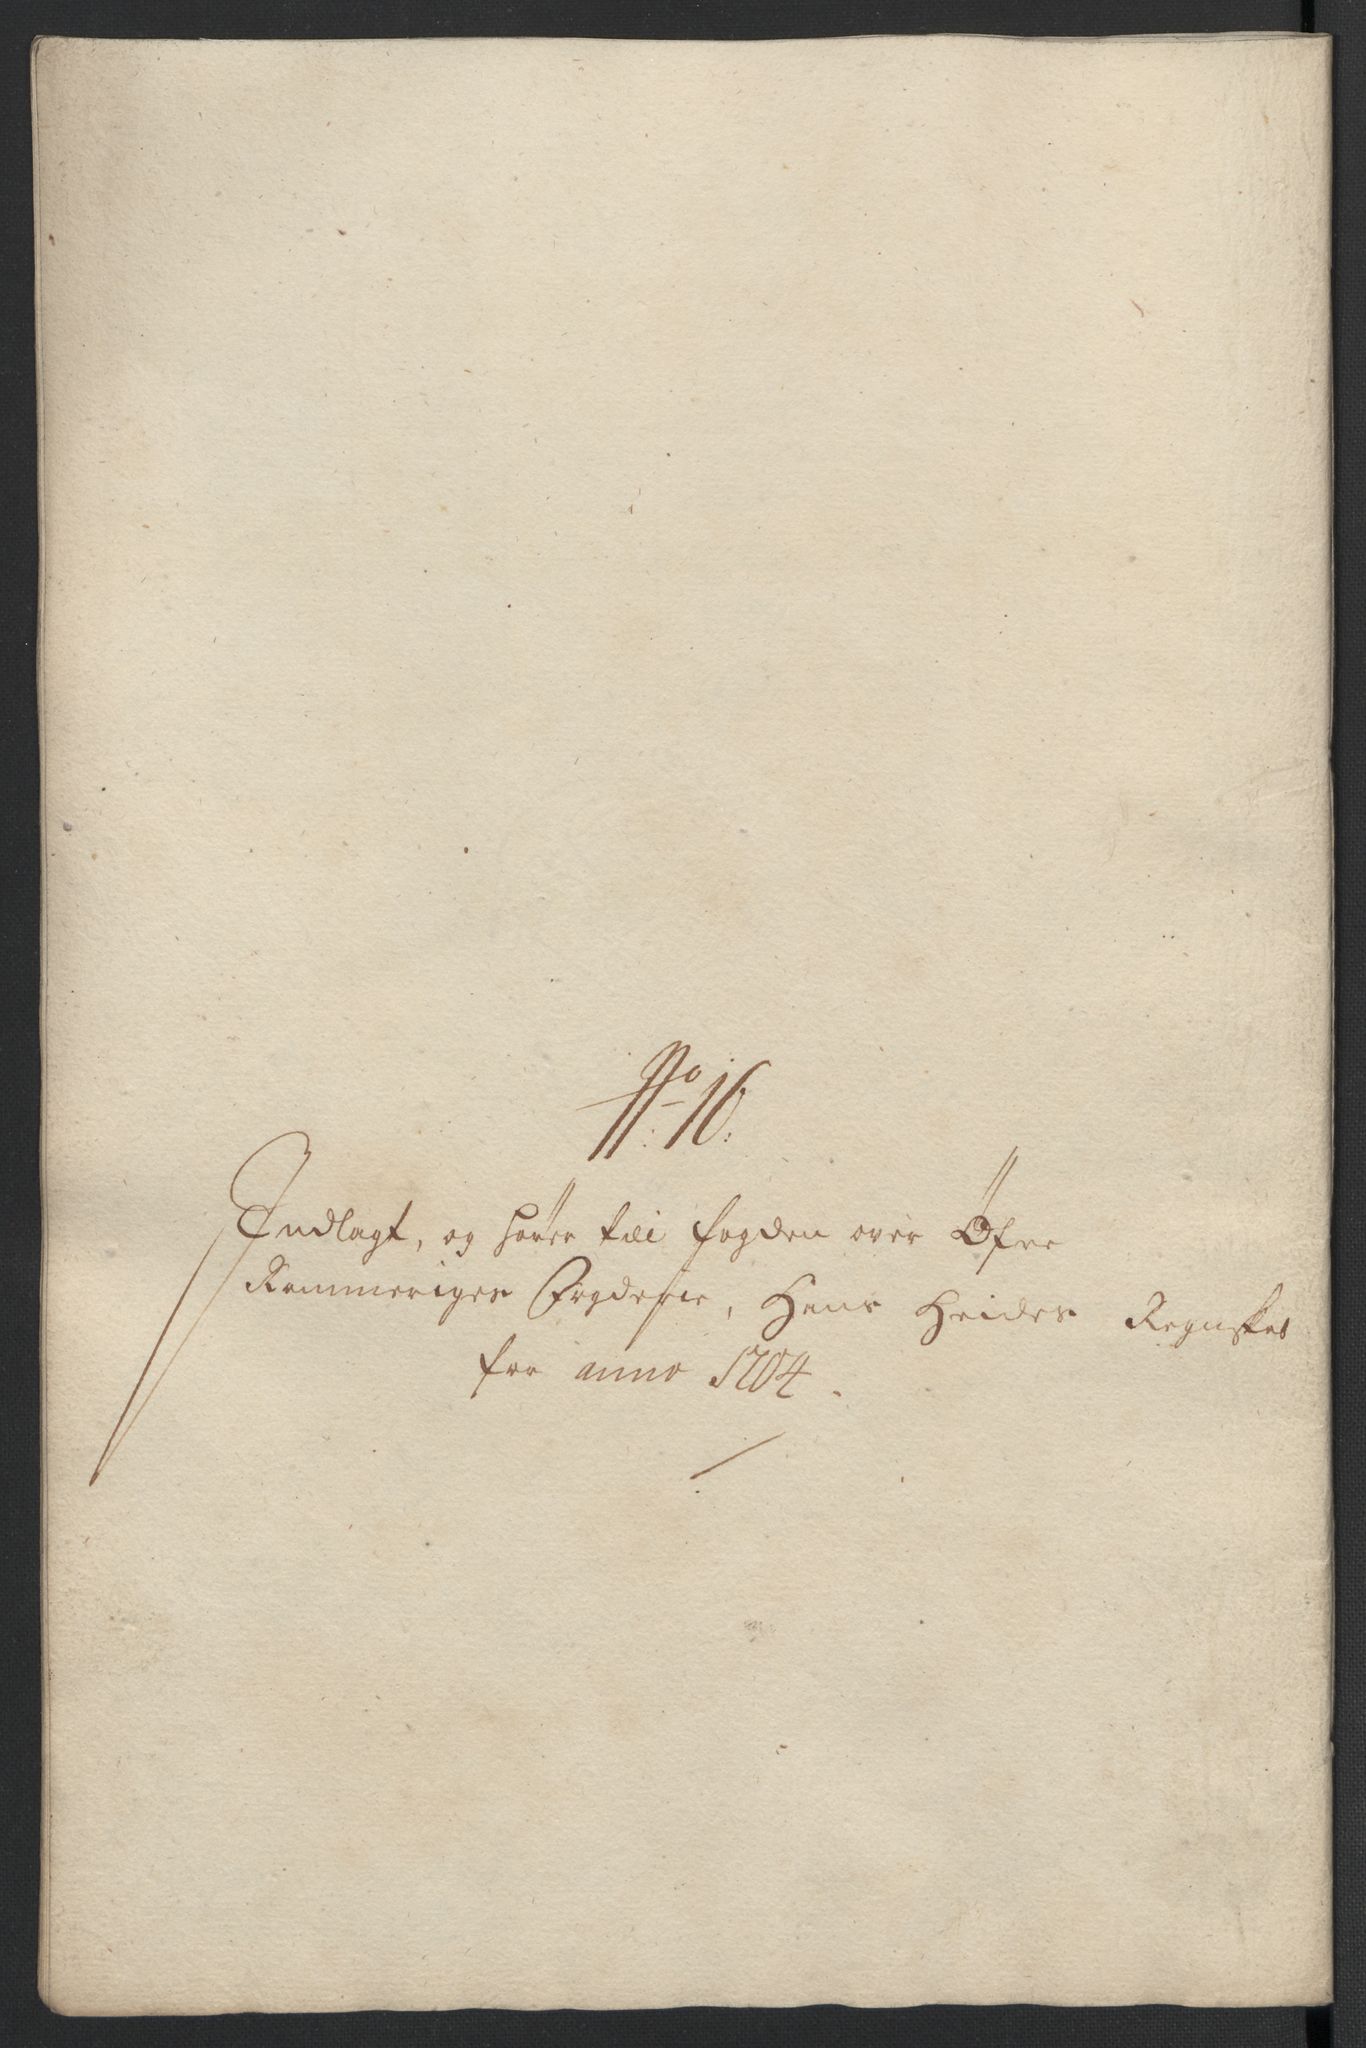 No 16.
Indlagt, og hører til fogden over Øfre
Rommeriges Fogderie, Hans Heides Regnskab
for anno 1704.